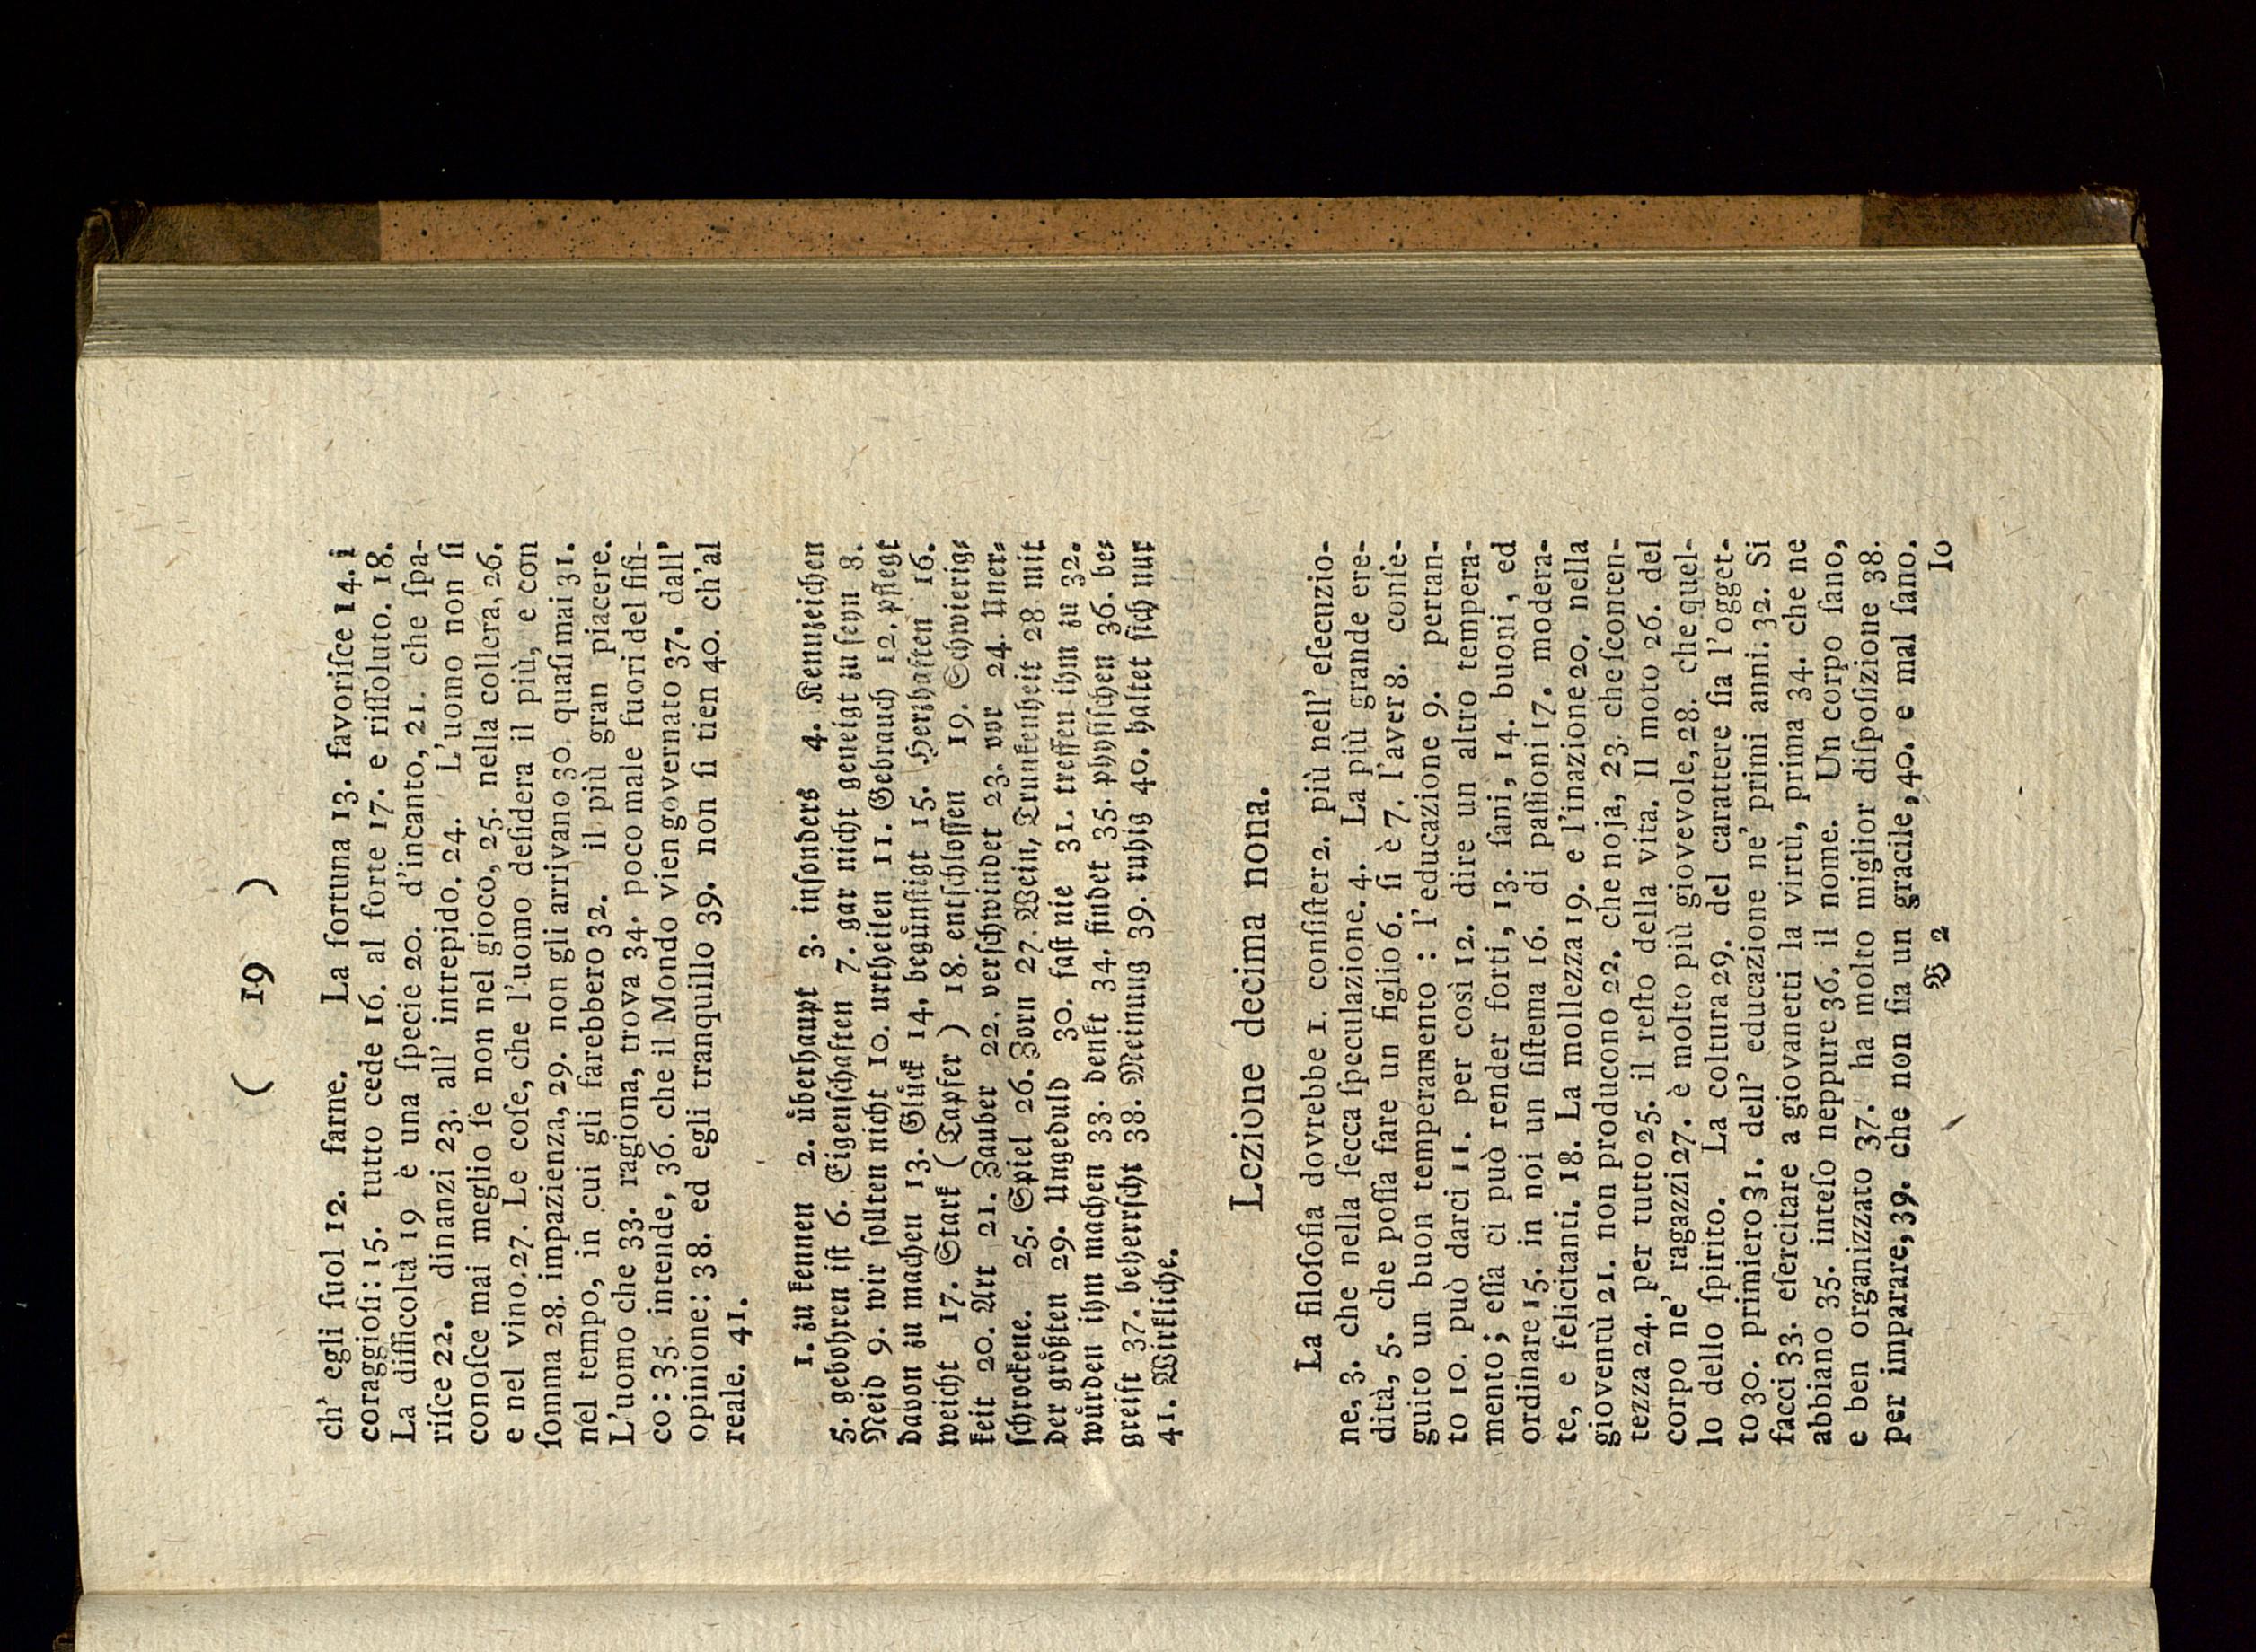 ( 19 )
ch' egli ſuol 12. farne. La fortuna 13. favoriſce 14. i
coraggioſi: 15. tutto cede 16. al forte 17. e riſſoluto. 18.
La difficoltà 19 è una ſpecie 20. d'incanto, 21. che ſpa-
riſce 22. dinanzi 23. all' intrepido. 24. L'uomo non ſi
conoſce mai meglio ſe non nel gioco, 25. nella collera, 26.
e nel vino. 27. Le coſe, che l'uomo deſidera il più, e con
ſomma 28. impazienza, 29. non gli arrivano 30. quaſi mai 31.
nel tempo, in cui gli farebbero 32. il più gran piacere.
L'uomo che 33. ragiona, trova 34. poco male fuori del fiſi-
co: 35. intende, 36. che il Mondo vien governato 37. dall'
opinione: 38. ed egli tranquillo 39. non ſi tien 40. ch'al
reale. 41.
1. zu kennen 2. uͤberhaupt 3. inſonders 4. Kennzeichen
5. gebohren iſt 6. Eigenſchaften 7. gar nicht geneigt zu ſeyn 8.
Neid 9. wir ſollten nicht 10. urtheilen 11. Gebrauch 12. pflegt
davon zu machen 13. Gluͤck 14. beguͤnſtigt 15. Herzhaften 16.
weicht 17. Stark ( Tapfer ) 18. entſchloſſen 19. Schwierig⸗
keit 20. Art 21. Zauber 22. verſchwindet 23. vor 24. Uner⸗
ſchrockene. 25. Spiel 26. Zorn 27. Wein, Trunkenheit 28 mit
der groͤßten 29. Ungeduld 30. faſt nie 31. treffen ihm zu 32.
wuͤrden ihm machen 33. denkt 34. findet 35. phyſiſchen 36. be⸗
greift 37. beherrſcht 38. Meinung 39. ruhig 40. haltet ſich nur
41. Wirkliche.
Lezione decima nona.
La filoſofia dovrebbe 1. conſiſter 2. più nell' eſecuzio-
ne, 3. che nella ſecca ſpeculazione. 4. La più grande ere-
dità, 5. che poſſa fare un figlio 6. ſi è 7. l'aver 8. conſe-
guito un buon temperamento : l'educazione 9. pertan-
to 10. può darci 11. per così 12. dire un altro tempera-
mento; eſſa ci può render forti, 13. ſani, 14. buoni, ed
ordinare 15. in noi un ſiſtema 16. di paſſioni 17. modera-
te, e felicitanti. 18. La mollezza 19. e l'inazione 20. nella
gioventù 21. non producono 22. che noja, 23. che ſconten-
tezza 24. per tutto 25. il reſto della vita. Il moto 26. del
corpo ne' ragazzi 27. è molto più giovevole, 28. che quel-
lo dello ſpirito. La coltura 29. del carattere ſia l'ogget-
to 30. primiero 31. dell' educazione ne' primi anni. 32. Si
facci 33. eſercitare a giovanetti la virtù, prima 34. che ne
abbiano 35. inteſo neppure 36. il nome. Un corpo ſano,
e ben organizzato 37. ha molto miglior diſpoſizione 38.
per imparare, 39. che non ſia un gracile, 40. e mal ſano.
B 2
Io